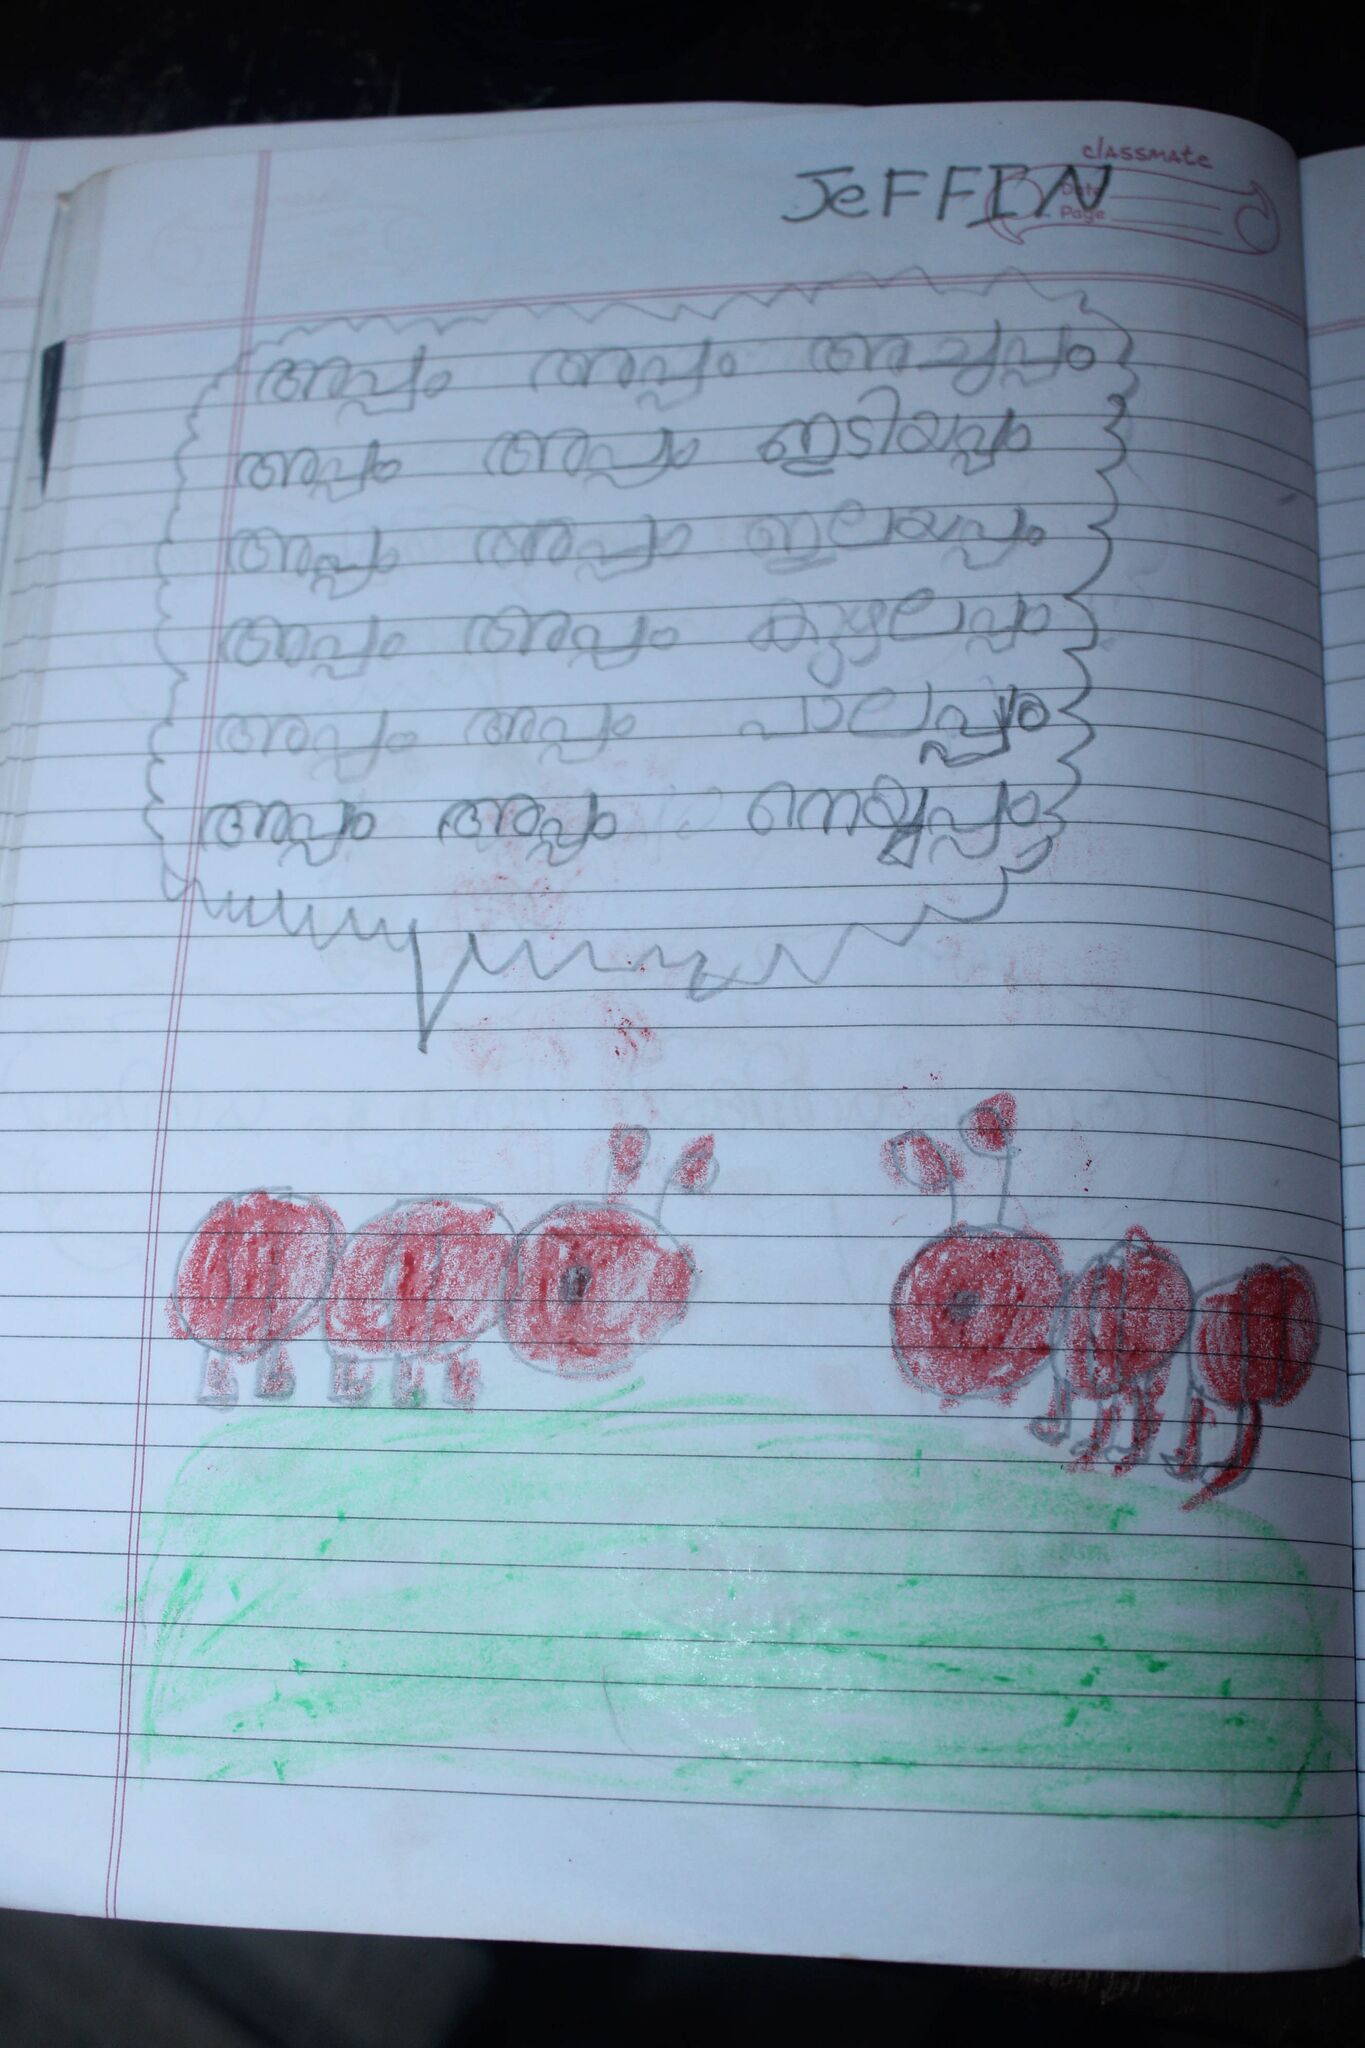 classmate
JeFFIN
Date
Page
അപ്പം അപ്പം അച്ചപ്പം
അപ്പം അപ്പം ഇടിയപ്പം
അപ്പം അപ്പം ഇലയപ്പം
അപ്പം അപ്പം കുഴലപ്പം
അപ്പം അപ്പം പാലപ്പം
അപ്പം അപ്പം നെയ്യപ്പം